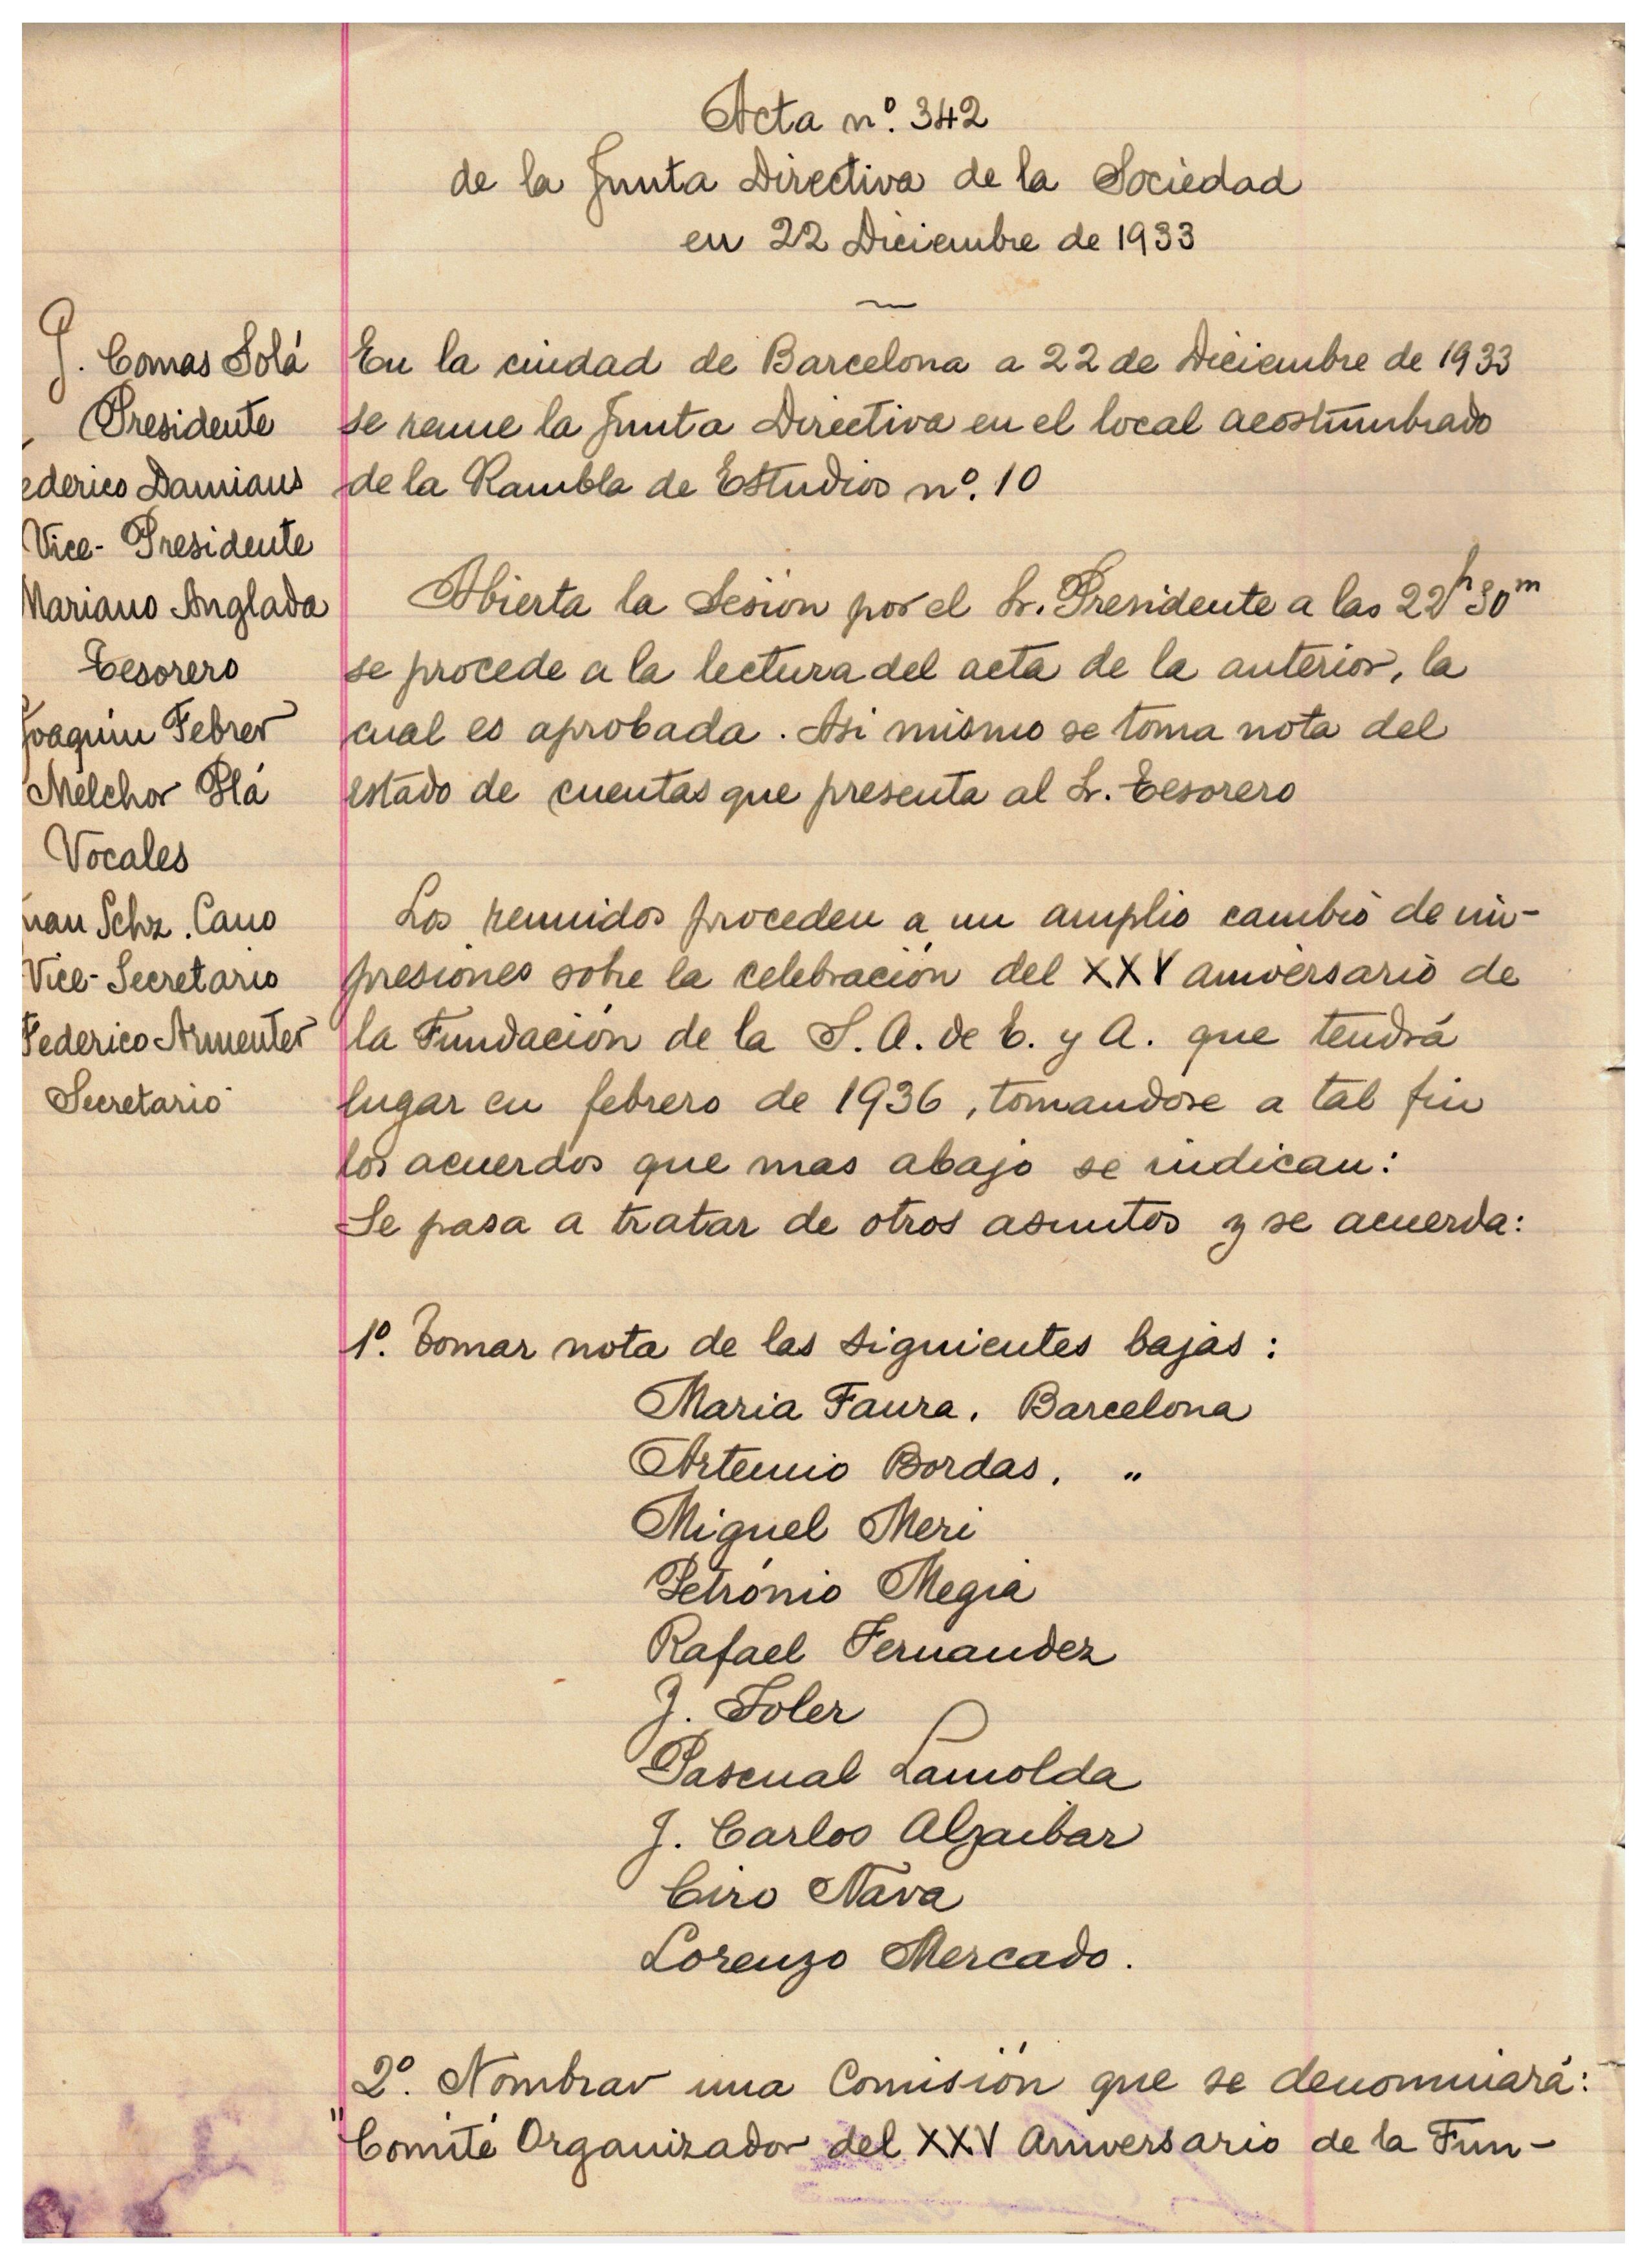 Acta nº. 342
de la Junta Directiva de la Sociedad
en 22 Diciembre de 1933
J. Comas Solá
Presidente
ederico Damians
Vice-Presidente
Mariano Anglada
Tesorero
Joaquin Febrer
Melchor Plá
Vocales
uan Schz. Cano
Vice-Secretario
Federico Armenter
Secretario
En la ciudad de Barcelona a 22 de Diciembre de 1933
se reune la Junta Directiva en el local acostumbrado
de la Rambla de Estudios nº. 10
Abierta la Sesión por el Sr. Presidente a las 22h 30m
se procede a la lectura del acta de la anterior, la
cual es aprobada. Asi mismo se toma nota del
estado de cuentas que presenta al Sr. Tesorero
Los reunidos proceden a un amplio cambio de im-
presiones sobre la celebración del XXV aniversario de
la Fundación de la S. A. de E. y A. que tendrá
lugar en febrero de 1936, tomandose a tal fin
los acuerdos que mas abajo se indican:
Se pasa a tratar de otros asuntos y se acuerda:
1º. Tomar nota de las siguientes bajas:
Maria Faura. Barcelona
Artemio Bordas. "
Miguel Meri
Petrónio Megia
Rafael Fernandez
J. Soler
Pascual Lamolda
J. Carlos Alzaibar
Ciro Nava
Lorenzo Mercado.
2º. Nombrar una Comisión que se denominará:
"Comité Organizador del XXV Aniversario de la Fun-